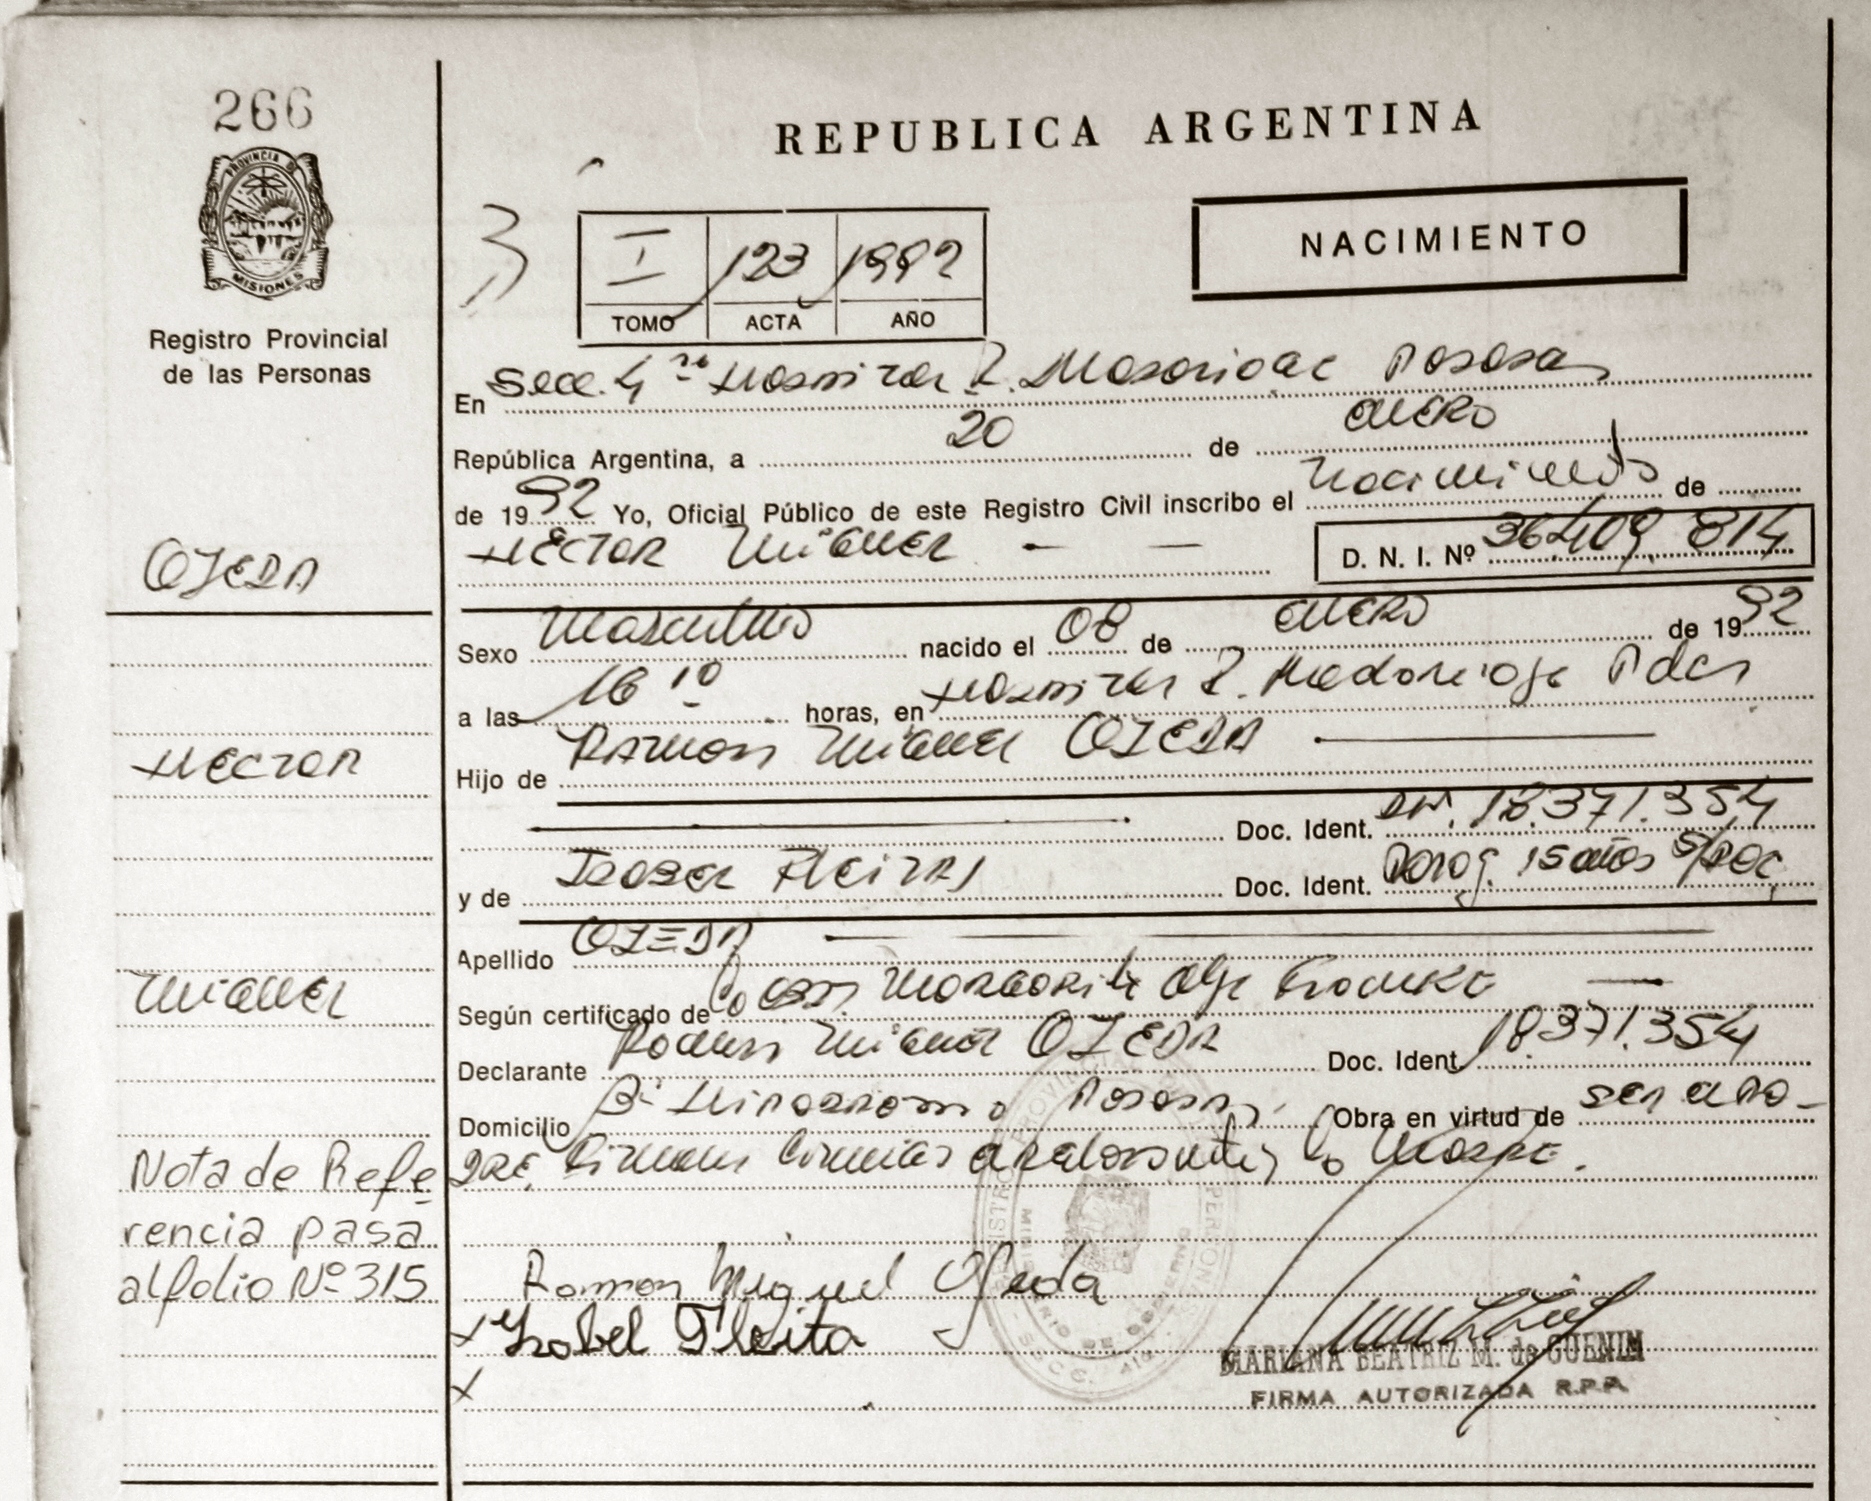 266
REPUBLICA ARGENTINA
PROVINCIA DE
MISIONES
NACIMIENTO
I 123 1992
TOMO ACTA AÑO
Registro Provincial
de las Personas
En Secc. 4 Hospital R. Madariaga Posadas
República Argentina, a 20 de enero
de 1992 Yo, Oficial Público de este Registro Civil inscribo el nacimiento de
HECTOR Miguel
D. N. I. Nº 36.409.814
OJEDA
Sexo Masculino nacido el 08 de enero de 1992
a las 16 10 horas, en Hospital R. Madariaga Pdas
HECTOR
Hijo de RAMON Miguel OJEDA
Doc. Ident. 18.371.354
y de Isabel FLEITAS Doc. Ident. 15 años s/doc.
Apellido OJEDA
Miguel
Según certificado de Margarita
Declarante Ramon Miguel OJEDA Doc. Ident. 18.371.354
Domicilio Posadas. Obra en virtud de ser el pa-
dre. la madre.
Nota de Refe
rencia pasa
al folio Nº 315
Ramon Miguel Ojeda
x Ysabel Fleita
x
MARIANA BEATRIZ M. de GUENIM
FIRMA AUTORIZADA R.P.P.